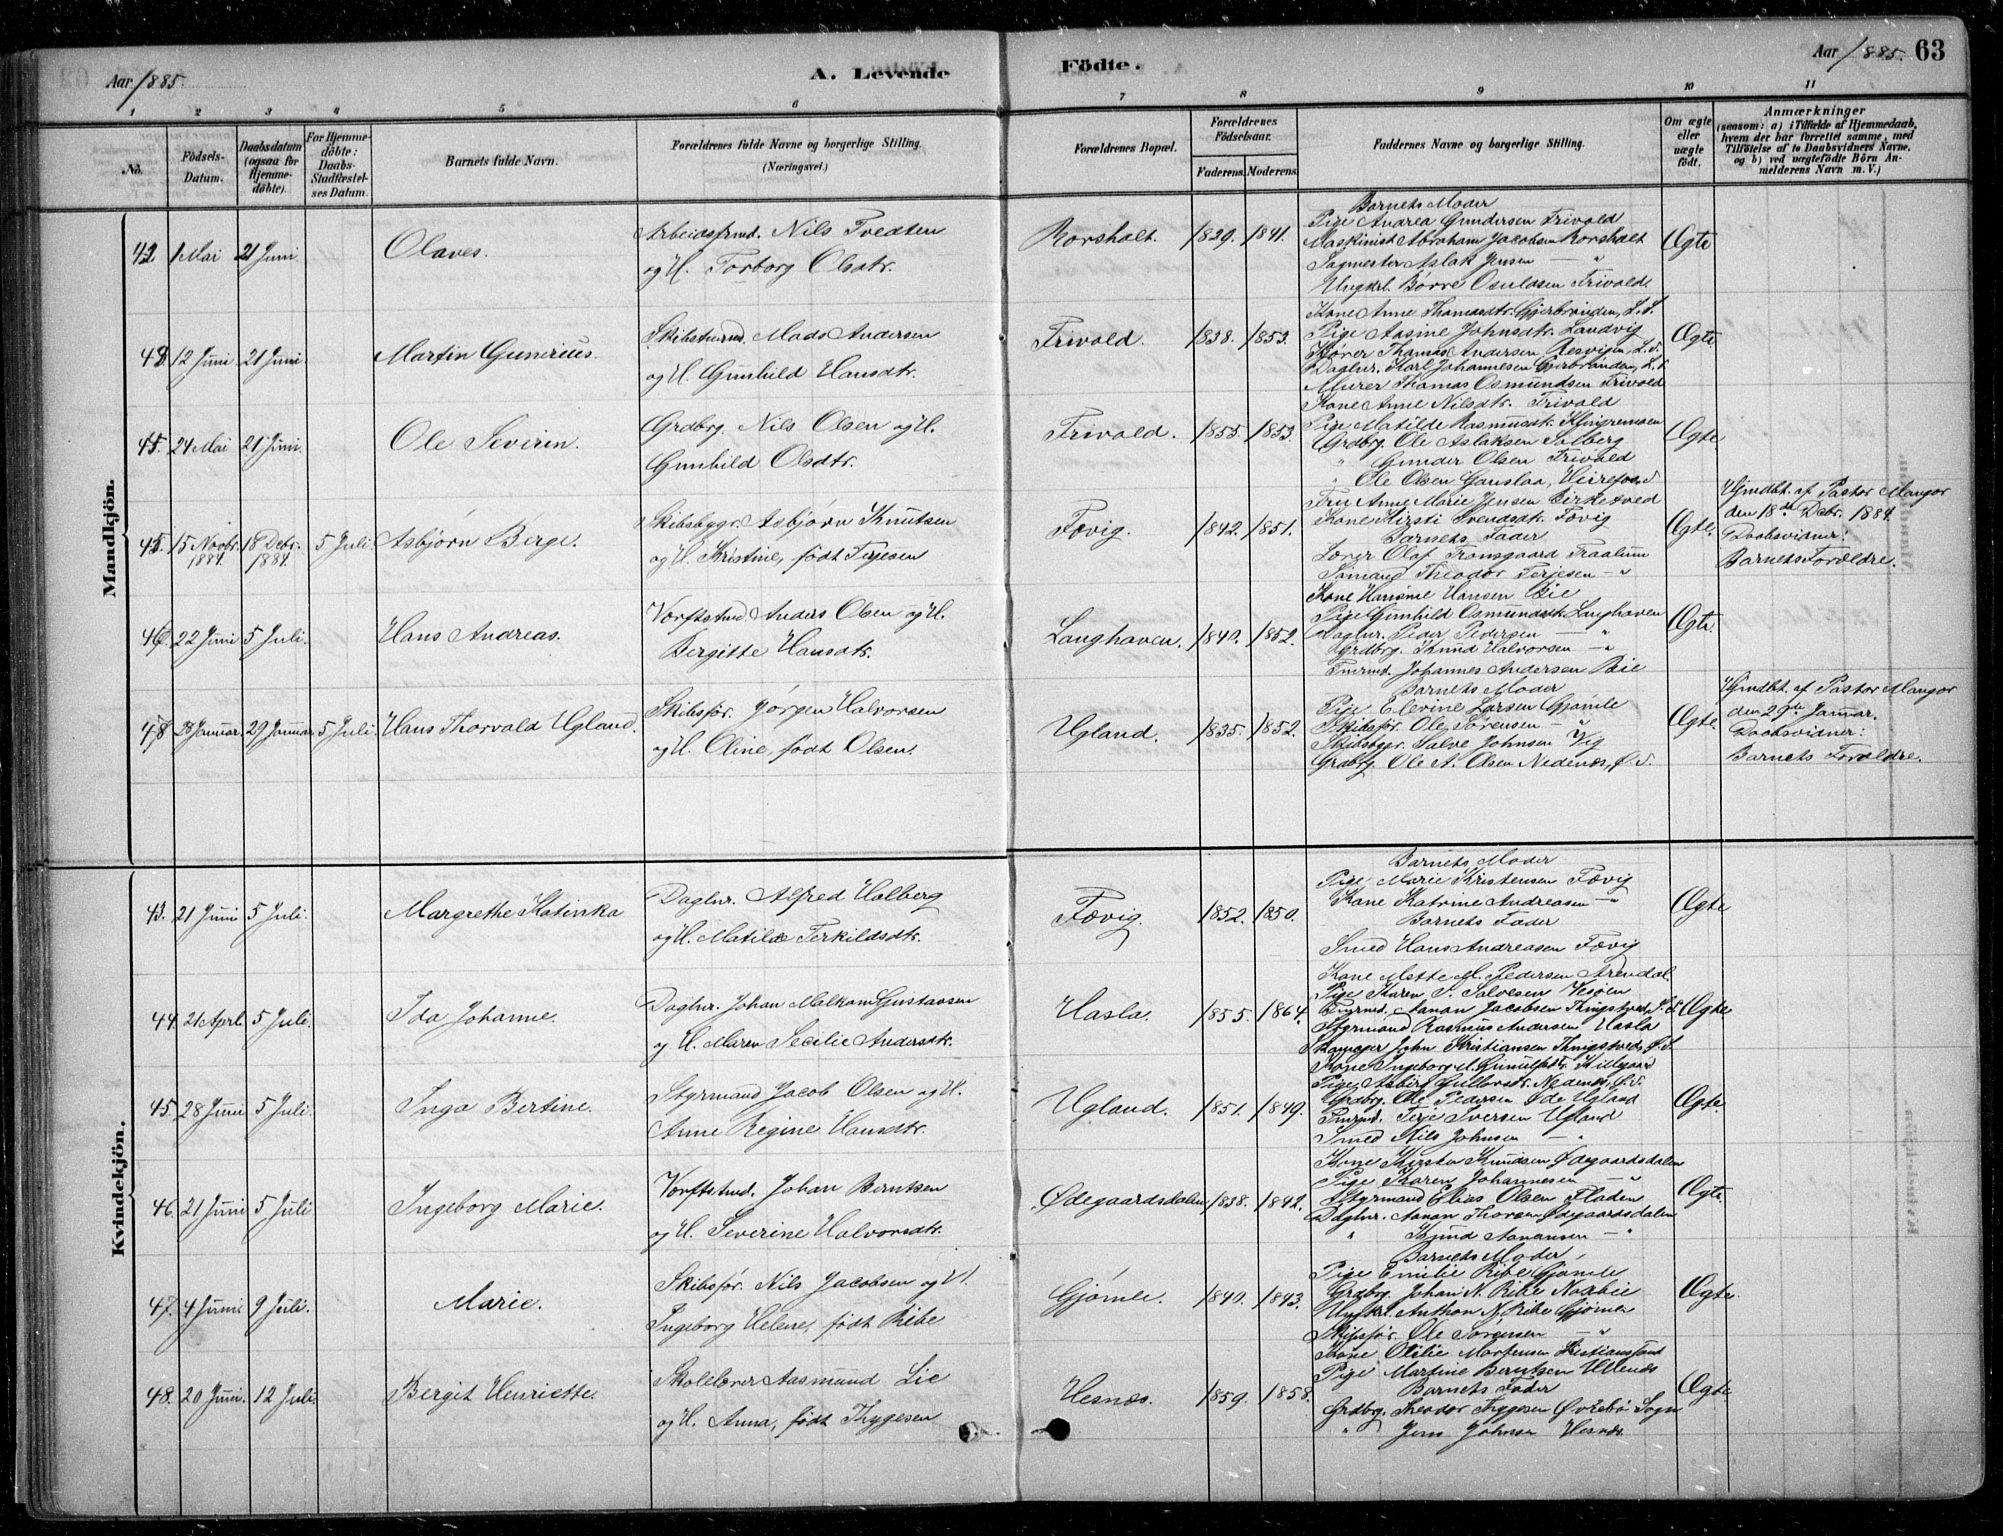 Aar 1885.
A. Levende
Födte.
Aar 1885. 63
1 2 3 4 5 6 7 8 9 10 11
No.
Födsels-Datum.
Daabsdatum (ogsaa for Hjemmedöbte).
For Hjemmedöbte: Daabs-Stadfæstelses Datum.
Barnets fulde Navn.
Forældrenes fulde Navne og borgerlige Stilling. (Næringsvei.)
Forældrenes Bopæl.
Forældrenes Födselsaar.
Faderens. Moderens.
Faddernes Navne og borgerlige Stilling.
Om ægte eller uægte födt.
Anmærkninger
(saasom: a) i Tilfælde af Hjemmedaab, hvem der har forrettet samme, med Tilföielse af to Daabsvidners Navne. og b) ved uægtefödte Börn Anmelderens Navn m. V.)
Mandkjön.
42. 1 Mai 21 Juni. Olaves. Arbeidsfmd. Nils Tvedten
og H. Torborg Olsdtr.
Rorshalt. 1829. 1841.
Barnets Moder
Pige Andrea Gundersen Frivold
Maskinist Abraham Jacobsen Rorshalt
Sagmester Aslak Jensen — "
Ungkrl. Børre Osuldsen Frivold.
Ægte
43. 12 Juni 21 Juni. Martin Gunerius. Skibstmd. Mads Andersen
og H. Gunhild Hansdtr.
Frivold. 1838. 1853.
Kone Anne Thomasdtr. Gjerbrønden, L. S.
Pige Aasine Johnsdtr. Landvig
Kjører Thomas Andersen Resvigen, L. S.
Daglnr. Karl Johannesen Gjerbrønden, L. S.
Murer Thomas Osmundsen Frivold
Ægte.
45. 24 Mai 21 Juni. Ole Severin. Grdbrg. Nils Olsen og H.
Gunhild Olsdtr.
Frivold. 1855. 1853.
Kone Anne Nilsdtr. Frivold
Pige Matilde Rasmusdtr. Klingremoen
Grdbrg. Ole Aslaksen Solberg
" Gunder Olsen Frivold
" Ole Olsen Ganslaa, Heirefos. S.
Ægte.
45. 15 Novbr. 1884. 18 Debr. 1884. 5 Juli Asbjørn Berge. Skibsbygr. Asbjørn Knutsen
og H. Kristine, født Terjesen
Fævig. 1842. 1851.
Fru Anne Marie Jensen Birketved
Kone Kirsti Svendsdtr. Fævig
Barnets Fader
Lærer Olaf Fransgaard Traalum
Sømand Theodor Terjesen — "
Ægte.
Hjmdbt. af Pastor Mangor
den 18de Debr. 1884.
Daabsvidner:
Barnets Forældre.
46. 22 Juni 5 Juli. Hans Andreas. Værftstmd. Anders Olsen og H.
Bergitte Hansdtr.
Langhaven. 1840. 1852.
Kone Hansine Hansen Bie
Pige Gunhild Osmundsdtr. Langhaven
Daglnr. Peder Pedersen — "
Grdbrg. Knud Halvorsen — "
Tmrmd. Johannes Andersen Bie
Ægte.
48. 28 Januar. 29 Januar. 5 Juli. Hans Thorvald Ugland. Skibsfør. Jørgen Halvorsen
og H. Oline, født Olsen.
Ugland. 1835. 1852.
Barnets Moder
Pige Elevine Larsen Gjømle
Skibsfør. Ole Sørensen — "
Skibsbgr. Salve Johnsen Vig
Grdbrg. Ole A. Olsen Nedenes, Ø. S.
Ægte.
Hjmdbt. af Pastor Mangor
den 29de Januar.
Daabsvidner:
Barnets Forældre.
Kvindekjön.
43. 21 Juni 5 Juli. Margrethe Katinka Daglnr. Alfred Halberg
og H. Matilde Terkildsdtr.
Fævig. 1852. 1850.
Barnets Moder
Pige Marie Kristensen Fævig
Kone Katrine Andreasen — "
Barnets Fader
Smed Hans Andreasen Fævig
Ægte
44. 21 April. 5 Juli. Ida Johanne. Daglnr. Johan Malkom Gustavsen
og H. Maren Secilie Andersdtr.
Hasla. 1855. 1864.
Kone Mette M. Pedersen Arendal.
Pige Karen S. Salvesen Vesøen
Tmrmd. Aanan Jacobsen Thingstved, Ø. S.
Styrmand Rasmus Andersen Hasla
Skomager John Kristiansen Thingstved, Ø. S.
Ægte
45. 28 Juni 5 Juli. Inga Bertine. Styrmand Jacob Olsen og H.
Anne Regine Hansdtr.
Ugland. 1851. 1849.
Kone Ingeborg M. Gunulfsdtr. Killegaard
Pige Asbirg Gullovsdtr. Nedenes, Ø. S.
Grdbrg. Ole Pedersen Øde Ugland
Tmrmd. Terje Iversen Ugland
Smed Nils Johnsen — "
Ægte.
46. 21 Juni 5 Juli Ingeborg Marie. Værftstmd. Johan Berntsen
og H. Severine Halvorsdtr.
Ødegaardsdalen. 1838. 1842.
Kone Kirsten Knudsen Ødegaardsdalen
Pige Karen Johannesen — "
Styrmand Elias Olsen Fladen
Daglnr. Aanan Thorsen Ødegaardsdalen
" Knud Aanansen — "
Ægte.
47. 4 Juni 9 Juli. Marie. Skibsfør. Nils Jacobsen og H.
Ingeborg Helene, født Ribe
Gjømle. 1840. 1843.
Barnets Moder
Pige Emilie Ribe Gjømle
Grdbrg. Johan N. Ribe Naxbie
Ungkrl. Anthon N. Ribe Gjømle
Skibsfør. Ole Sørensen — "
Ægte.
48. 20 Juni. 12 Juli. Bergit Henriette. Skolelærer Aasmund Lie
og H. Anna, født Thygesen
Hesnæs. 1859. 1858.
Kone Otilie Mortensen Kristianssand
Pige Martine Berntsen Hesnæs
Barnets Fader
Grdbrg. Theodor Thygesen Øvrebø Sogn
" Jens Johnsen Hesnæs.
Ægte.